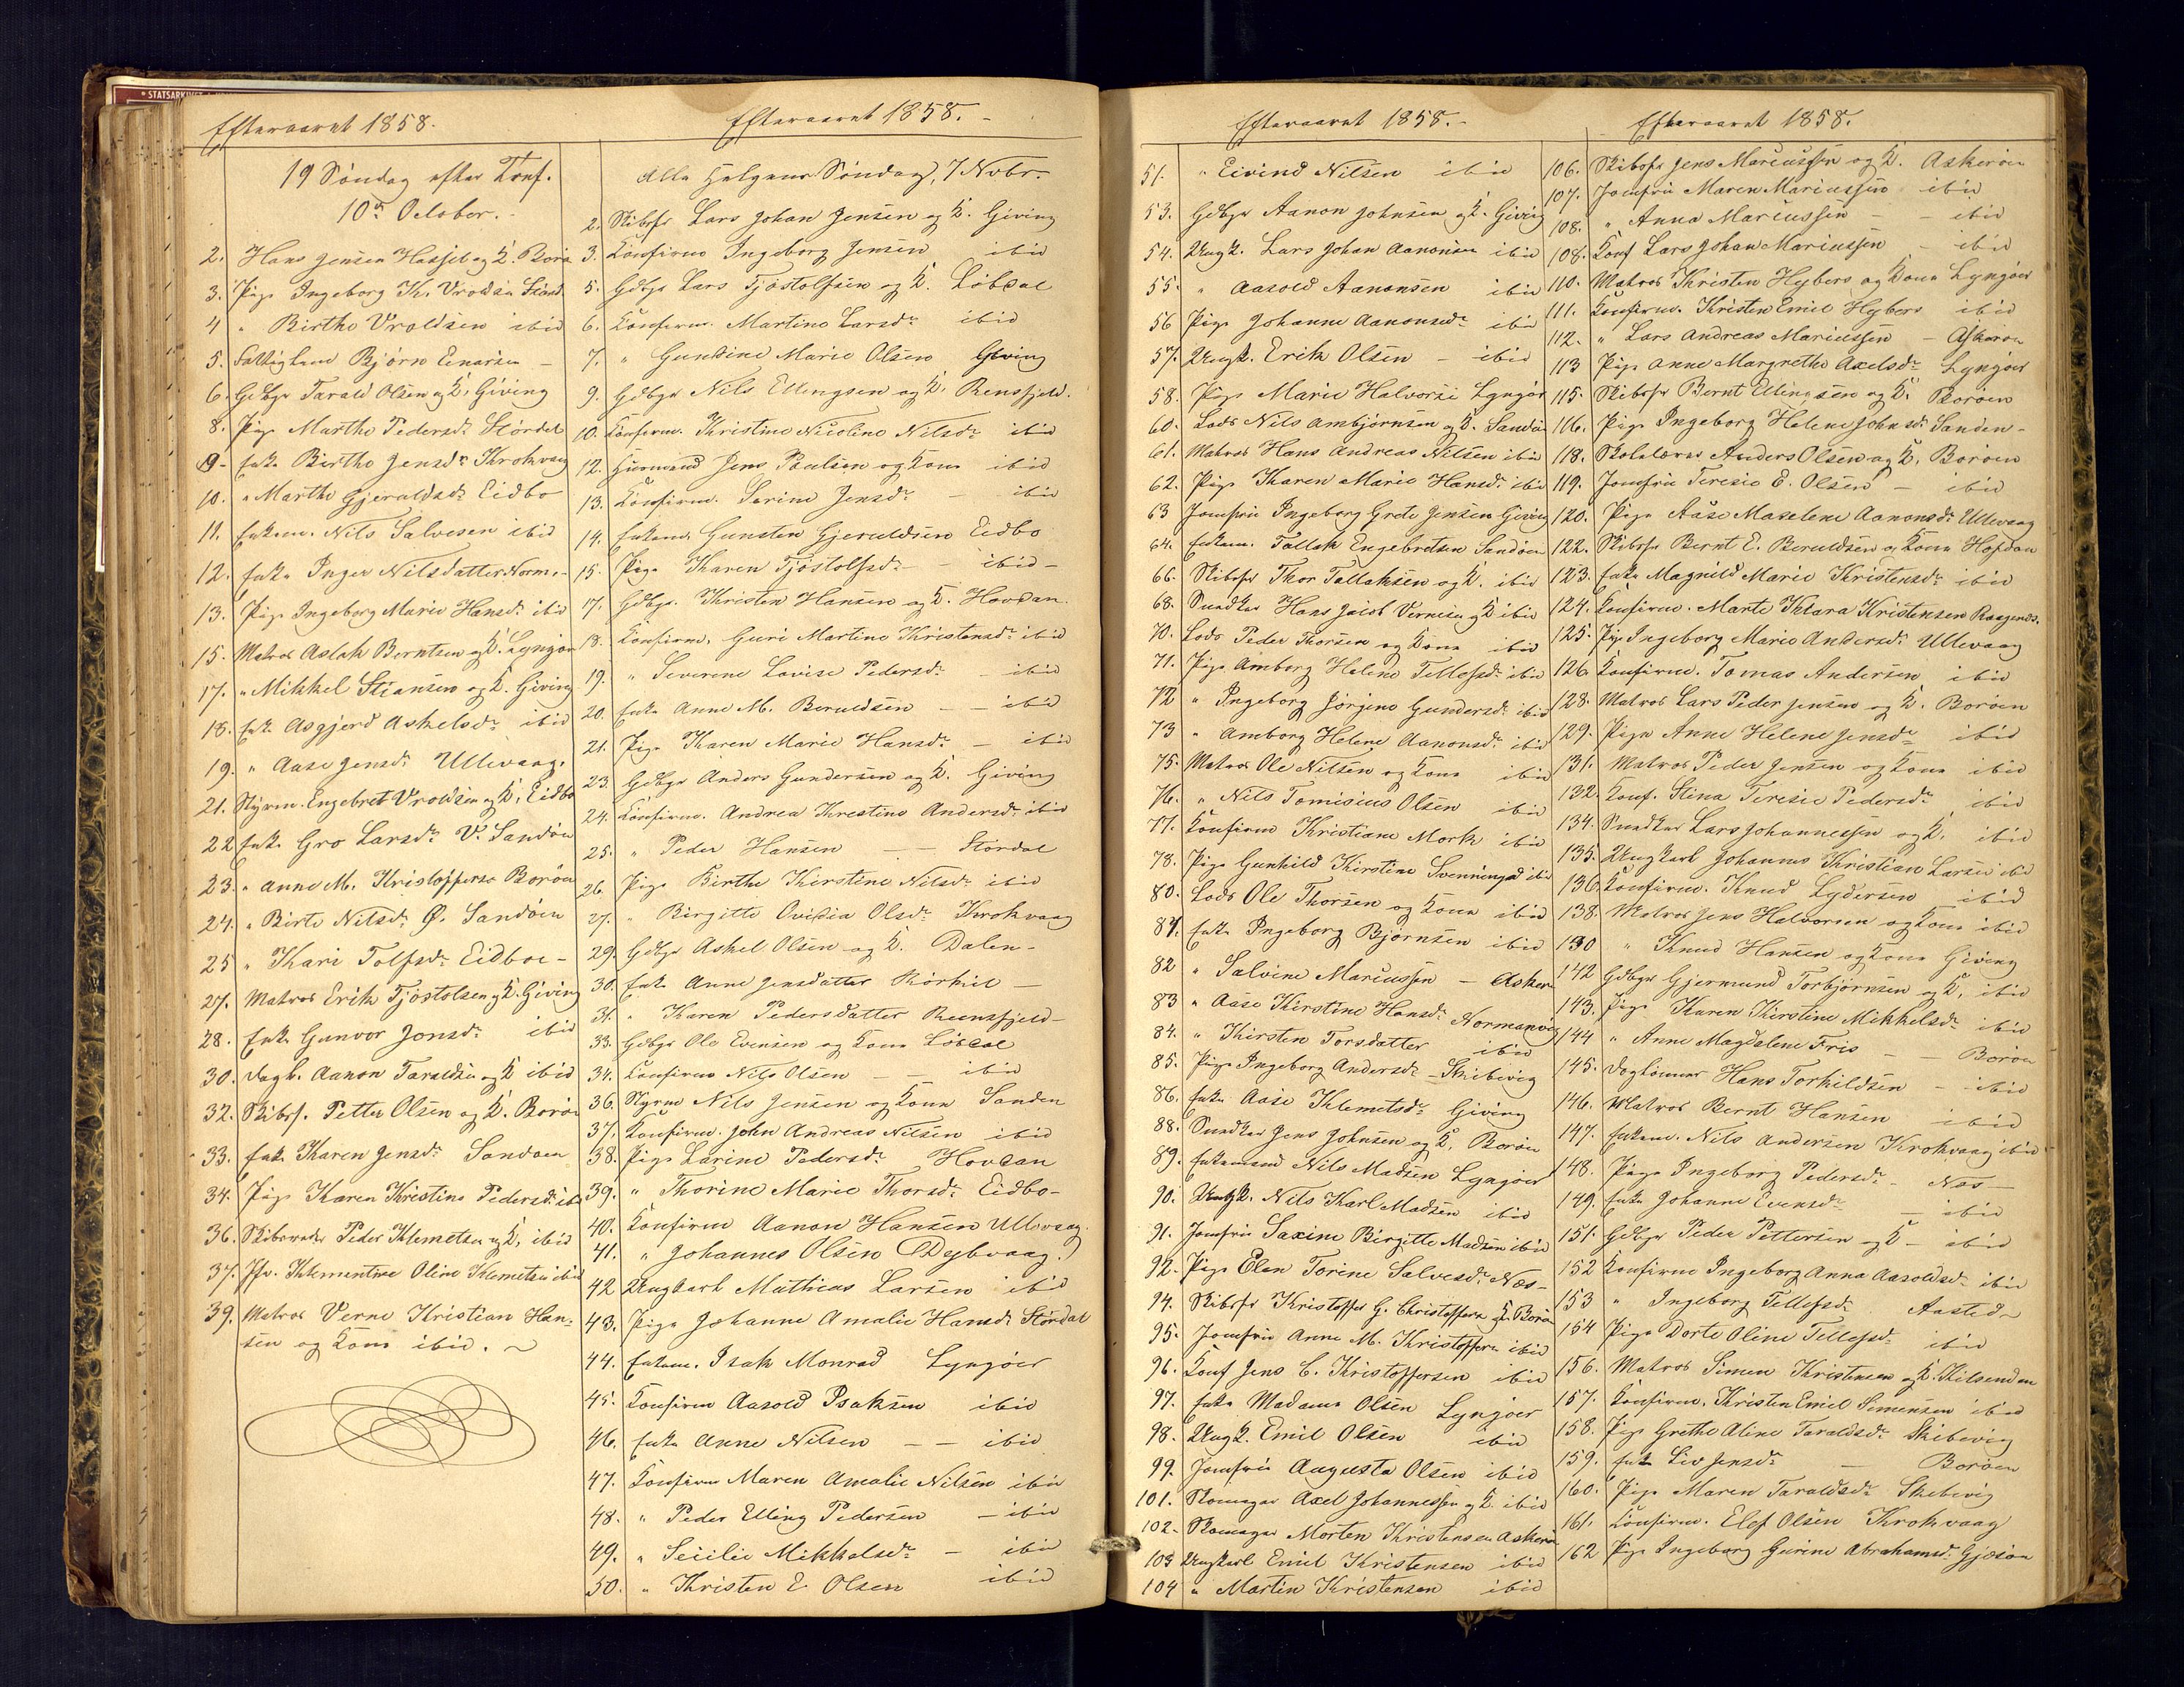 * STATSARKIVET
Efteraaret 1858.
19 Söndag efter Tref.
10de October.
2. Hans Jensen Hasseb og K. Borö
3. Pige Ingeborg Kr. Vroldsen Störd.
4 " Birthe Vroldsen ibid
5. Fattiglem Björn Einarsen –
6. Gdbgr Tarald Olsen og K. Giving
8. Pige Marthe Pedersdr Stördal
9- Enke Birthe Jensdr Krokvaag
10. " Marthe Gjeruldsdr Eidbo
11. Enkem. Nils Salvesen ibid
12. Enke Inger Nilsdatter Norm.-
13. Pige Ingeborg Marie Hansdr ibid
15. Matros Aslak Berntsen og K. Lyngör
17. " Mikkel Stiansen og K. Giving
18. Enk. Asgjerd Askelsdr ibid
19. " Aase Jensdr Ullevaag.
21. Styrm. Engebret Vroldsen og K. Eidbo
22 Enke Gro Larsdr V. Sandöen
23. " Anne M. Kristoffersen Boröen
24. " Birte Nilsdr Ø. Sandöen
25 " Kari Tolfsdr Eidboe-
27. Matros Erik Tjöstolsen og K. Giving
28. Enke Gunvor Jonsdr ibid
30. Dagl. Aanon Taraldsen og K ibid
32. Skibsf. Petter Olsen og K. Boröe
33. Enke Karen Jensdr Sandöen
34. Pige Karen Kristine Pedersdr ibid
36. Skibsreder Peder Klemetsen og K. ibid
37. Jfr. Klementine Oline Klemetsen ibid
39. Matros Verne Kristian Han-
sen og Kone ibid.
Efteraaret 1858.
Alle Helgens Söndag, 7 Novbr.
2. Skibsfr Lars Johan Jensen og K. Giving
3. Konfirm Ingeborg Jensen ibid
5. Gdbgr Lars Tjöstolfsen og K. Löbdal
6. Konfirm. Martine Larsdr ibid
7. " Gunkine Marie Olsen Giving
9. Gdbgr Nils Ellingsen og K. Rensfjeld.
10. Konfirm. Kristine Nicoline Nilsdr ibid
12. Huusmand Jens Paulsen og Kone ibid
13. Konfirm. Sarine Jensdr – ibid
14. Enkemd Gunsten Gjeruldsen Eidbo
15. Pige Karen Tjöstolfsdr – ibid –
17. Gdbgr. Kristen Hansen og K. Hovdan.
18. Konfirm. Guri Martine Kristensdr ibid
19. " Severene Lovise Pedersdr – ibid
20. Enke Anne M. Beruldsen – – ibid
21. Pige Karen Marie Hansdr – ibid
23. Gdbgr Anders Gundersen og K. Giving
24. Konfirm. Andrea Kristine Andersdr ibid
25. " Peder Hansen – – Stördal
26. Pige Birthe Kirstine Nilsdr ibid
27. " Birgitte Ovidia Olsdr Krokvaag
29. Gdbgr Askel Olsen og K. Dalen-
30. Enke Anne Jensdatter Rörkil –
31. " Karen Pedersdatter Reensfjeld-
33. Gdbgr Ole Evensen og Kone Löbdal
34. Konfirm Nils Olsen – – ibid
36. Styrm Nils Jensen og Kone Sanden
37. Konfirm. John Andreas Nilsen ibid
38. Pige Larine Pedersdr Hovdan
39. " Thorine Marie Thorsdr Eidbo-
40. Konfirm Aanon Hansen Ullevaag.
41. " Johannes Olsen Dybvaag.
42 Ungkarl Mathias Larsen ibid
43. Pige Johanne Amalie Hansdr Stördal
44. Enkem. Isak Monrad Lyngöer
45. Konfirm Aasold Isaksen ibid
46. Enke Anne Nilsen – – ibid
47. Konfirm Maren Amalie Nilsen ibid
48. " Peder Elling Pedersen – ibid
49. " Secilie Mikkelsdr – ibid
50. " Kristen E. Olsen ibid
Efteraaret 1858.
51. " Eivind Nilsen ibid
53. Gdbgr Aanon Johnsen og K. Giving
54. Ungk. Lars Johan Aanonsen ibid
55. " Aasold Aanonsen ibid
56 Pige Johanne Aanonsdr ibid
57. Ungk. Erik Olsen – ibid
58. Pige Marie Halvorse Lyngör
60. Lods Nils Ambjörnsen og K. Sandöen
61. Matros Hans Andreas Nilsen ibid
62. Pige Karen Marie Hansdr ibid
63 Jomfru Ingeborg Grete Jensen Giving
64. Enkem. Tallak Engebretsen Sandöen
66. Skibsfr Thor Tallaksen og K. ibid
68. Snedker Hans Jacob Vernesen og K ibid
70. Lods Peder Thorsen og Kone ibid
71. Pige Amborg Helene Tellefsdr ibid
72 " Ingeborg Jörgine Gundersdr ibid
73 " Amborg Helene Aanonsdr ibid
75. Matros Ole Nilsen og Kone ibid
76. " Nils Tomisius Olsen ibid
77. Konfirm Kristiane Mork ibid
78. Pige Gunhild Kirstine Svenningsd ibid
80. Lods Ole Thorsen og Kone ibid
81. Enke Ingeborg Björnsen ibid
82 " Salvine Mariussen – Askerö
83 " Aase Kirstine Hansdr Normanvig
84. " Kirsten Torsdatter ibid
85. Pige Ingeborg Andersdr – Skibevig
86. Enke Aase Klemetsdr Giving
88. Snedker Jens Johnsen og K. Boröen
89. Enkemand Nils Madsen Lyngöer
90. Ungk. Nils Karl Madsen ibid
91. Jomfru Saxine Birgitte Madsen ibid
92. Pige Elen Torine Salvesdr Næs-
94. Skibsfr Kristoffer G. Christoffersen og K. Borö
95. Jomfru Anne M. Kristoffersen ibid
96. Konf Jens C. Kristoffersen ibid
97. Enke Madame Olsen Lyngöer
98. Ungk. Emil Olsen ibid
99. Jomfru Augusta Olsen ibid
101. Skomager Axel Johannessen og K. ibid
102. Skomager Morten Kristensen Askerö
103 Ungkarl Emil Kristensen ibid
104 " Martin Kristensen ibid
Efteraaret 1858.
106. Skibsfr Jens Mariussen og K. Askeröen
107. Jomfru Maren Mariussen ibid
108. " Anna Mariussen – – ibid
108. Konf Lars Johan Mariussen – ibid
110. Matros Kristen Hybers og Kone Lyngöer
111. Konfirm. Kristen Emil Hybers ibid
112. " Lars Andreas Mariussen – Askeröen
113 Pige Anne Margrethe Axelsdr Lyngöer
115. Skibsfr Bernt Ellingsen og K. Boröen
116. Pige Ingeborg Helene Johnsdr Sanden-
118. Skolelærer Anders Olsen og K. Boröen
119. Jomfru Teresie E. Olsen – ibid
120. Pige Aase Maselene Aanonsdr Ullevaag
122. Skibsfr Bernt E. Beruldsen og Kone Hofdan
123. Enke Magnild Marie Kristensdr ibid
124. Konfirm. Marte Klara Kristensen
125. Pige Ingeborg Marie Andersdr Ullevaag
126. Konfirm. Tomas Andersen ibid
128. Matros Lars Peder Jensen og K. Boröen
129. Pige Anne Helene Jensdr ibid
131. Matros Peder Jensen og Kone ibid
132. Konf. Stina Teresie Pedersdr ibid
134. Snedker Lars Johannessen og K. ibid
135. Ungkarl Johannes Kristian Larsen ibid
136. Konfirm. Knud Lydersen ibid
138. Matros Jens Halvorsen og Kone ibid
130 " Knud Hansen og Kone Giving
142 Gdbgr Gjermund Torbjörnsen og K. ibid
143. Pige Karen Kirstine Mikkelsdr ibid
144 " Anne Magdalene Fris – – Boröe
145. Daglönner Hans Torkildsen – ibid
146. Matros Bernt Hansen ibid
147. Enkem. Nils Andersen Krokvaag ibid
148. Pige Ingeborg Pedersdr – Næs –
149. Enke Johanne Evensdr – ibid
151. Gdbgr Peder Pettersen og K – ibid
152 Konfirm Ingeborg Anna Aasoldsdr ibid
153 " Ingeborg Tellefsdr Aasted
154 Pige Dorte Oline Tellefsdr ibid
156. Matros Simen Kristensen og K.
157. Konfirm. Kristen Emil Simensen ibid
158. Pige Grethe Aline Taraldsdr Skibevig
159. Enke Liv Jensdr – Boröen
160. Pige Maren Taraldsdr Skebevig
161. Konfirm. Elef Olsen Krokvaag
162 Pige Ingeborg Gurine Abrahamsd. Gjæsöen